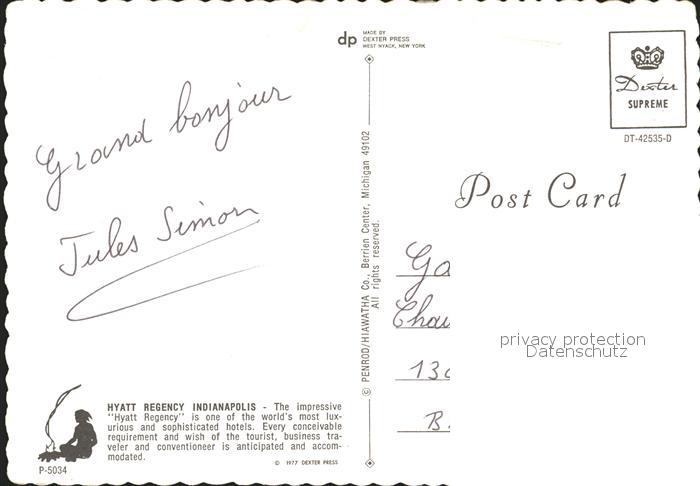 Grand bonjour
Jules Simon
HYATT REGENCY INDIANAPOLIS - The impressive
"Hyatt Regency" is one of the world's most lux-
urious and sophisticated hotels. Every conceivable
requirement and wish of the tourist, business tra-
veler and conventioneer is anticipated and accom-
modated.
© 1977 DEXTER PRESS
P-5034
dp
MADE BY
DEXTER PRESS
WEST NYACK, NEW YORK
© PENROD/HIAWATHA Co., Berrien Center, Michigan 49102
All rights reserved.
Dexter
SUPREME
DT-42535-D
Post Card
Ga
Chau
13
B.
privacy protection
Datenschutz